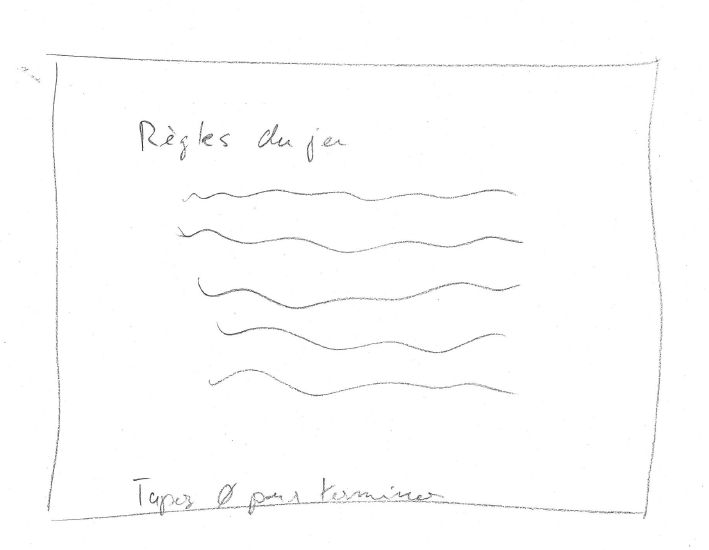 Règles du jeu
Tapez Ø pour terminer